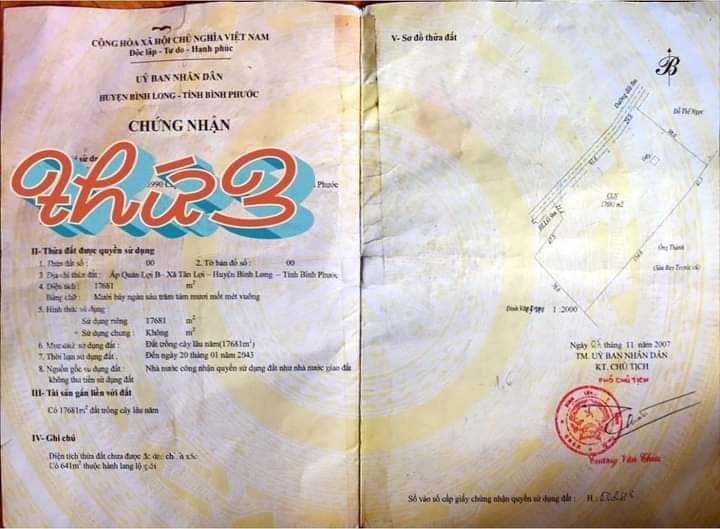 CỘNG HÒA XÃ HỘI CHỦ NGHĨA VIỆT NAM
Độc lập - Tự do - Hạnh phúc
UỶ BAN NHÂN DÂN
HUYỆN BÌNH LONG - TỈNH BÌNH PHƯỚC
CHỨNG NHẬN
thứ 3
Phước
II- Thửa đất được quyền sử dụng
1. Thửa đất số : 00 2. Tờ bản đồ số : 00
3. Địa chỉ thửa đất : Ấp Quản Lợi B - Xã Tân Lợi - Huyện Bình Long - Tỉnh Bình Phước
4. Diện tích : 17681 m²
Bằng chữ : Mười bảy ngàn sáu trăm tám mươi mốt mét vuông
5. Hình thức sử dụng :
+ Sử dụng riêng : 17681 m²
+ Sử dụng chung : Không m²
6. Mục đích sử dụng đất : Đất trồng cây lâu năm (17681m²)
7. Thời hạn sử dụng đất : Đến ngày 20 tháng 01 năm 2043
8. Nguồn gốc sử dụng đất : Nhà nước công nhận quyền sử dụng đất như nhà nước giao đất
không thu tiền sử dụng đất
III- Tài sản gắn liền với đất
Có 17681m² đất trồng cây lâu năm
IV- Ghi chú
Diện tích thửa đất chưa được đo đạc chính xác
Có 641m² thuộc hành lang lộ giới
V- Sơ đồ thửa đất
B
Đường đất 6m
Đỗ Thế Ngọc
CLN
17681 m2
Ông Thành
(Sân Bay Trước cũ)
1 :2000
Ngày 05 tháng 11 năm 2007
TM. UỶ BAN NHÂN DÂN
KT. CHỦ TỊCH
PHÓ CHỦ TỊCH
Số vào sổ cấp giấy chứng nhận quyền sử dụng đất : H